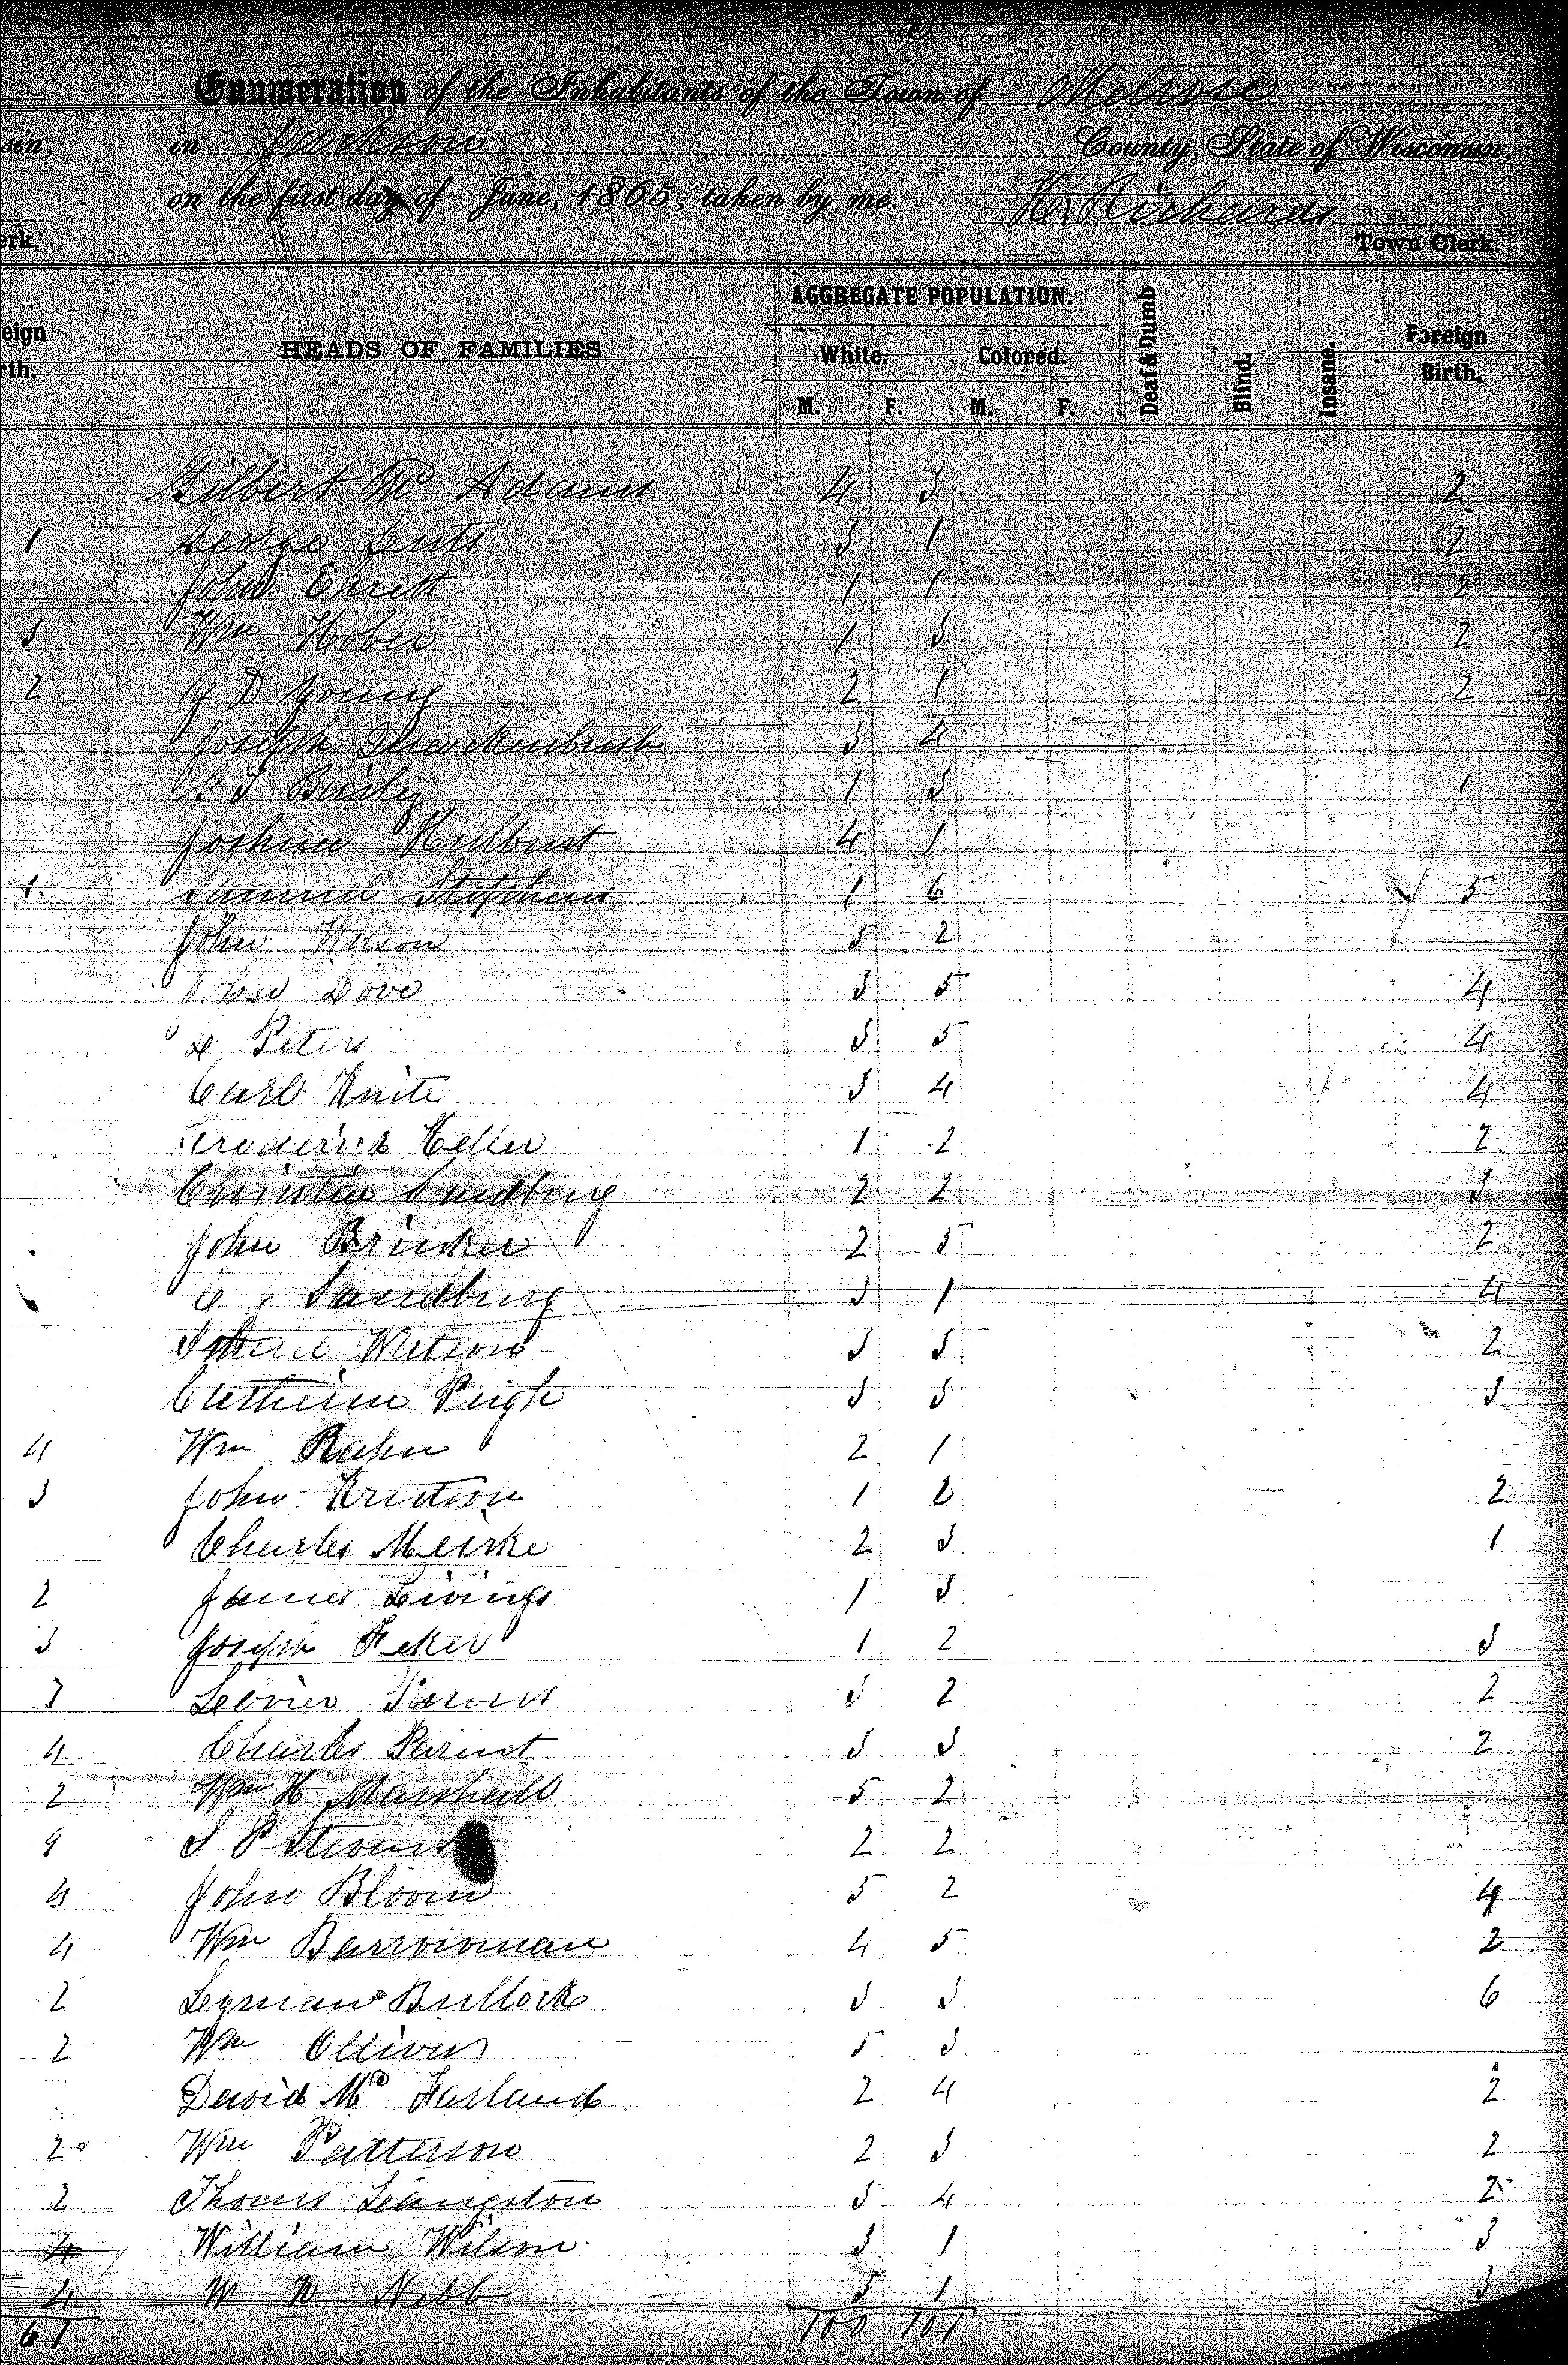 Enumeration of the Inhabitants of the Town of Melrose
sin, in Jackson County, State of Wisconsin,
on the first day of June, 1865, taken by me. Richards
erk. Town Clerk.
AGGREGATE POPULATION.
eign HEADS OF FAMILIES White. Colored. Deaf & Dumb Blind. Insane. Foreign
rth. Birth.
M. F. M. F.
Gilbert Mc Adams 4 3 2
1 George 3 1 2
John Ehrett 1 1 2
3 Wm Hober 1 3 2
2 D Young 2 1 2
Joseph Quackenbush 3 4
1 3 1
Joshua Hulburt 4 1
1 Samuel Stephens 1 6 5
John 5 2
Dove 3 5 4
Peters 3 5 4
Carl 3 4 4
1 2 2
2 2 3
John 2 5 2
Sandburg 3 1 4
Watson 3 3 2
Catherine Pugh 3 3 3
4 Wm 2 1
3 John 1 2 2
Charles 2 3 1
2 James Livings 1 3
3 Joseph 1 2 3
3 3 2 2
4 Charles Parent 3 3 2
2 Wm H Marshall 5 2
9 S P Stevens 2 2
4 John Bloom 5 2 4
4 Wm Barrowman 4 5 2
2 Lyman Bullock 3 3 6
2 Wm Ollivers 5 3
David Mc Farland 2 4 2
2 Wm Patterson 2 3 2
2 Thomas Livingston 3 4 2
4 William Wilson 3 1 3
4 W W 5 1 3
61 100 101